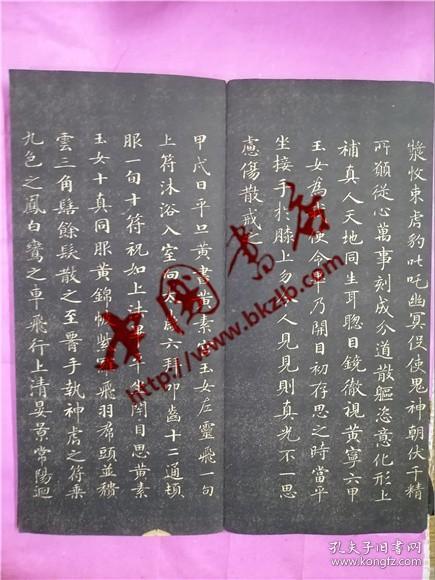 漿收束虎豹叱吒幽冥役使鬼神朝伏千精
所願從心萬事刻成分道散軀恣意化形上
補真人天地同生耳聰目鏡徹視黃寧六甲
玉女為使令畢乃開目初存思之時當平
坐接手於膝上勿人見見則真光不一思
慮傷散戒之
甲戌日平旦黃書黃素玉女左靈飛一旬
上符沐浴入室向太歲六拜叩齒十二通頓
服一旬十符祝如上法畢平坐閉目思黃素
玉女十真同服黃錦帔紫飛羽裙頭並穨
雲三角髻餘髮散之至腰手執神虎之符乘
九色之鳳白鸞之車飛行上清晏景常陽迴
中國書店
http://www.bkzlb.com
孔夫子旧书网